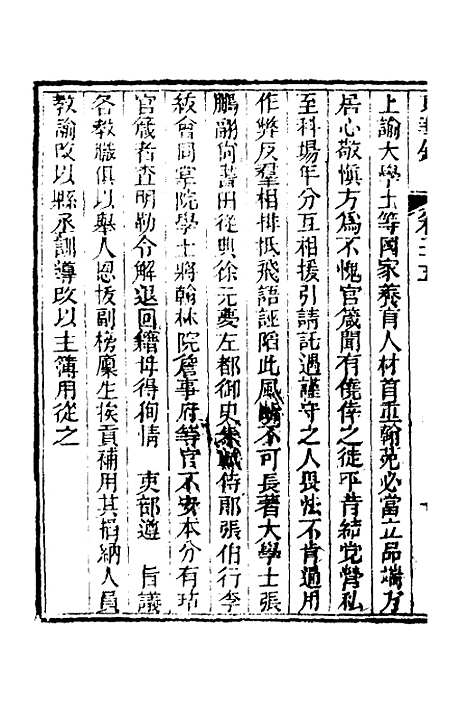 東華錄 卷二十五
上諭大學士等國家養育人材首重翰苑必當立品端方
居心敬慎方為不愧官箴聞有僥倖之徒平昔結党營私
至科場年分互相援引請託遇謹守之人畏怯不肯過用
作弊反羣相排抵飛語誣陷此風斷不可長著大學士張
鵬翮尚書田從典徐元夢左都御史朱軾侍郎張伯行李
紱會同掌院學士將翰林院詹事府等官不安本分有玷
官箴者查明勒令解退回籍毋得徇情 吏部遵 旨議
各教職俱以舉人恩拔副榜廩生挨貢補用其捐納人員
教諭改以縣丞訓導改以主簿用從之